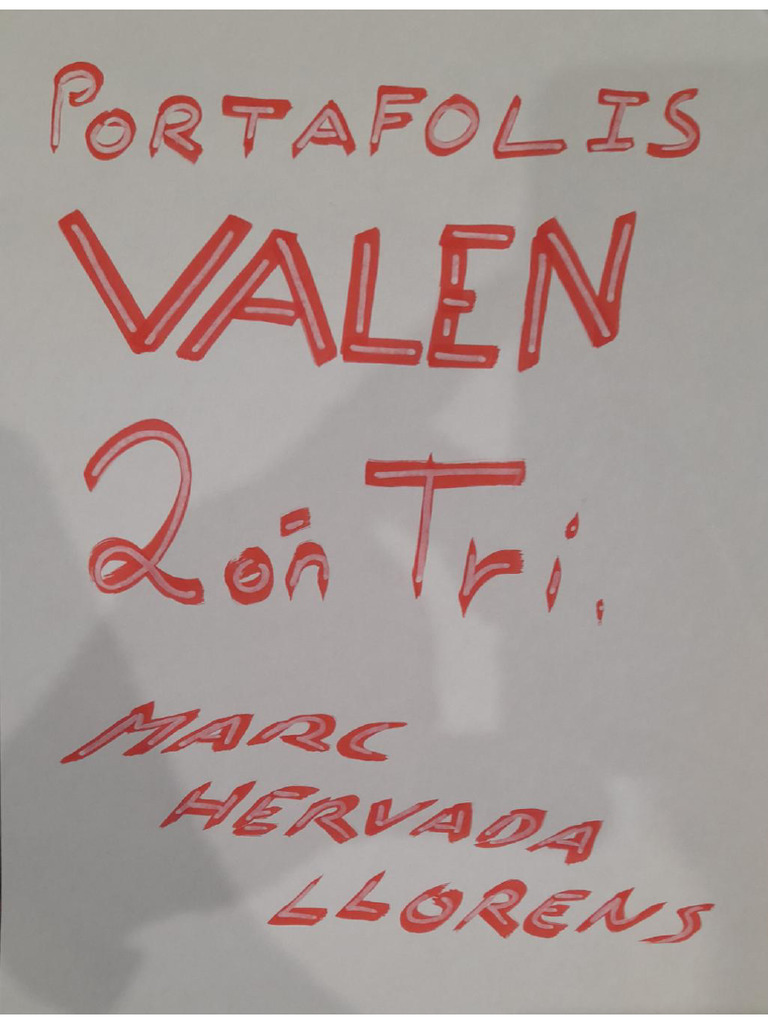 PORTAFOLIS
VALEN
2on Tri.
MARC
HERVADA
LLORENS